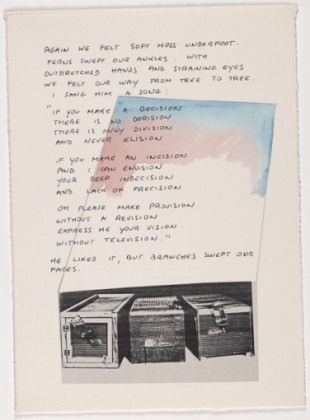 AGAIN WE FELT SOFT MOSS UNDERFOOT.
FERNS SWEPT OUR ANKLES. WITH
OUTSTRETCHED HANDS AND STRAINING EYES
WE FELT OUR WAY FROM TREE TO TREE.
I SANG HIM A SONG:
"IF YOU MAKE A DECISION
THERE IS NO DERISION
THERE IS ONLY DIVISION
AND NEVER ELISION
IF YOU MAKE AN INCISION
AND I CAN ENVISION
YOUR DEEP INDECISION
AND LACK OF PRECISION
OH PLEASE MAKE PROVISION
WITHOUT A REVISION
EXPRESS ME YOUR VISION
WITHOUT TELEVISION."
HE LIKED IT, BUT BRANCHES SWEPT OUR
FACES.